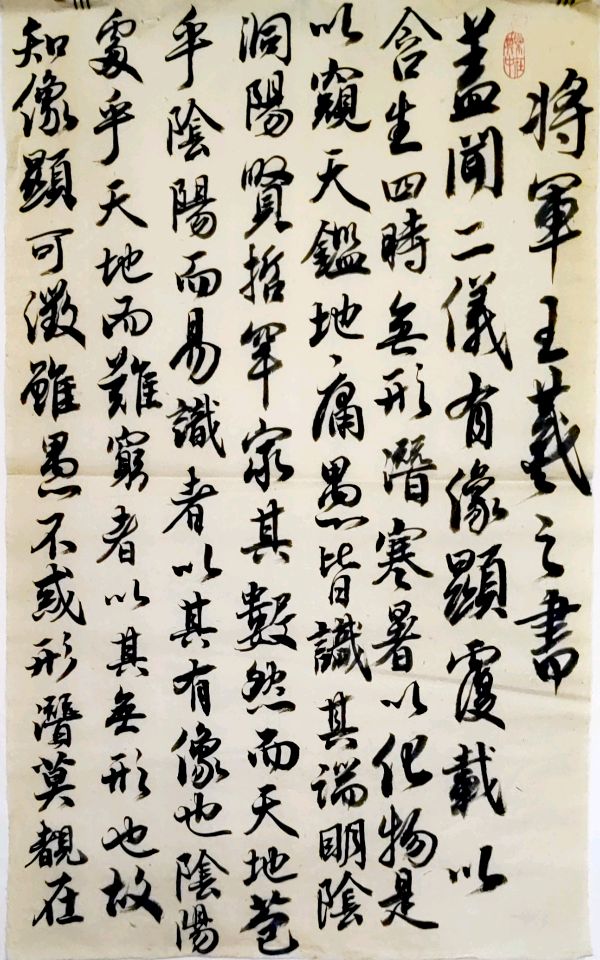 将軍王羲之書
蓋聞二儀有像顯覆載以
含生四時無形潛寒暑以化物是
以窺天鑑地庸愚皆識其端明陰
洞陽賢哲罕窮其數然而天地苞
乎陰陽而易識者以其有像也陰陽
處乎天地而難窮者以其無形也故
知像顯可徵雖愚不惑形潛莫覩在